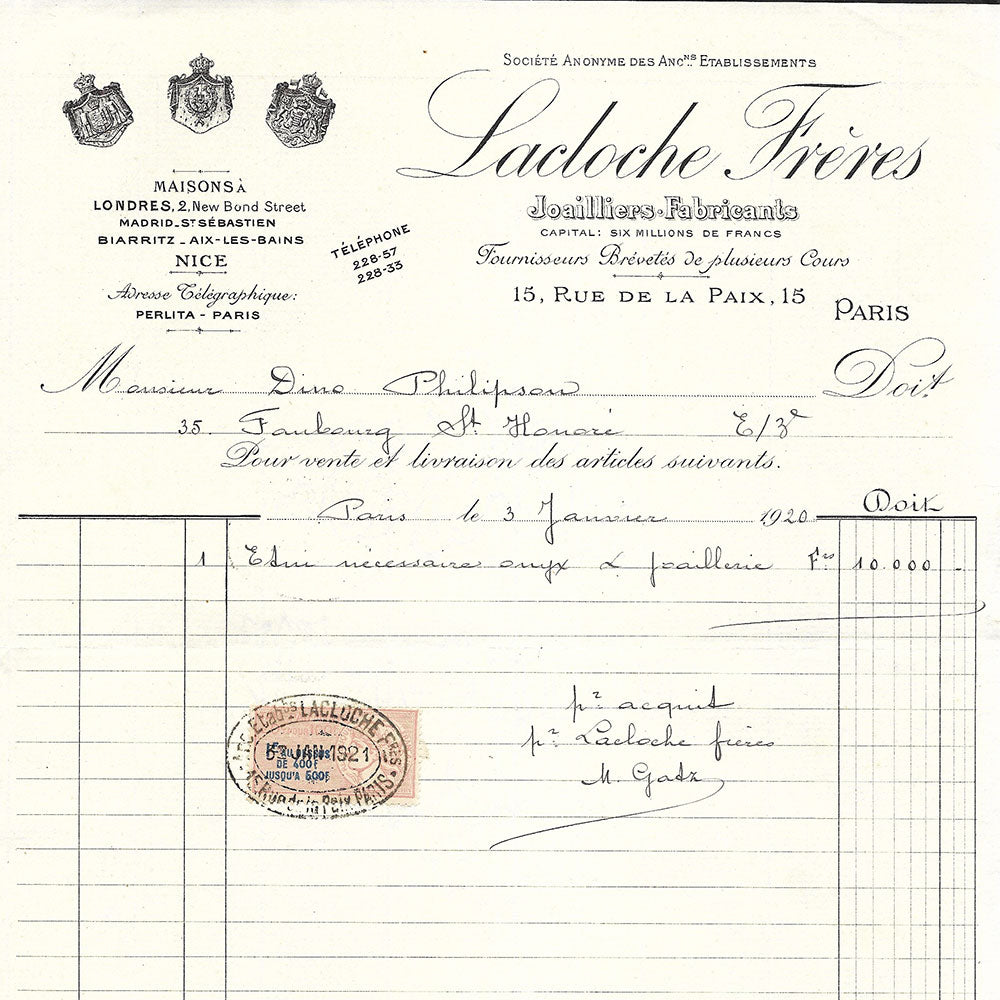 SOCIÉTÉ ANONYME DES ANCNS ETABLISSEMENTS
Lacloche Frères
Joailliers-Fabricants
CAPITAL: SIX MILLIONS DE FRANCS
Fournisseurs Brévetés de plusieurs Cours
15, RUE DE LA PAIX, 15
PARIS
MAISONS À
LONDRES, 2, New Bond Street
MADRID_ST SÉBASTIEN
BIARRITZ _ AIX-LES-BAINS
NICE
Adresse Télégraphique:
PERLITA - PARIS
TÉLÉPHONE
228-57
228-33
Monsieur Dino Philipson Doit
35. Faubourg St. Honoré E/
Pour vente et livraison des articles suivants.
Paris le 3 Janvier 1920 Doit
1 Etui nécessaire onyx & joaillerie Frs 10.000 -
pr acquit
pr Lacloche frères
M. Gadz
Etabts LACLOCHE Fres
JAN 1921
AU DESSUS
DE 400F
JUSQU'A 500F
15 Rue de la Paix PARIS